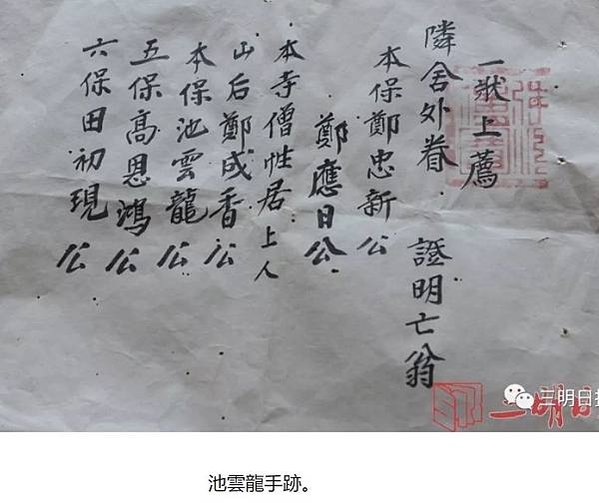 一狀上薦
隣舍外眷 證明亡翁
本保鄭忠新公
鄭應日公
本寺僧性居上人
山后鄭成香公
本保池雲龍公
五保高恩鴻公
六保田初現公
三明日报
三明日
池雲龍手跡。